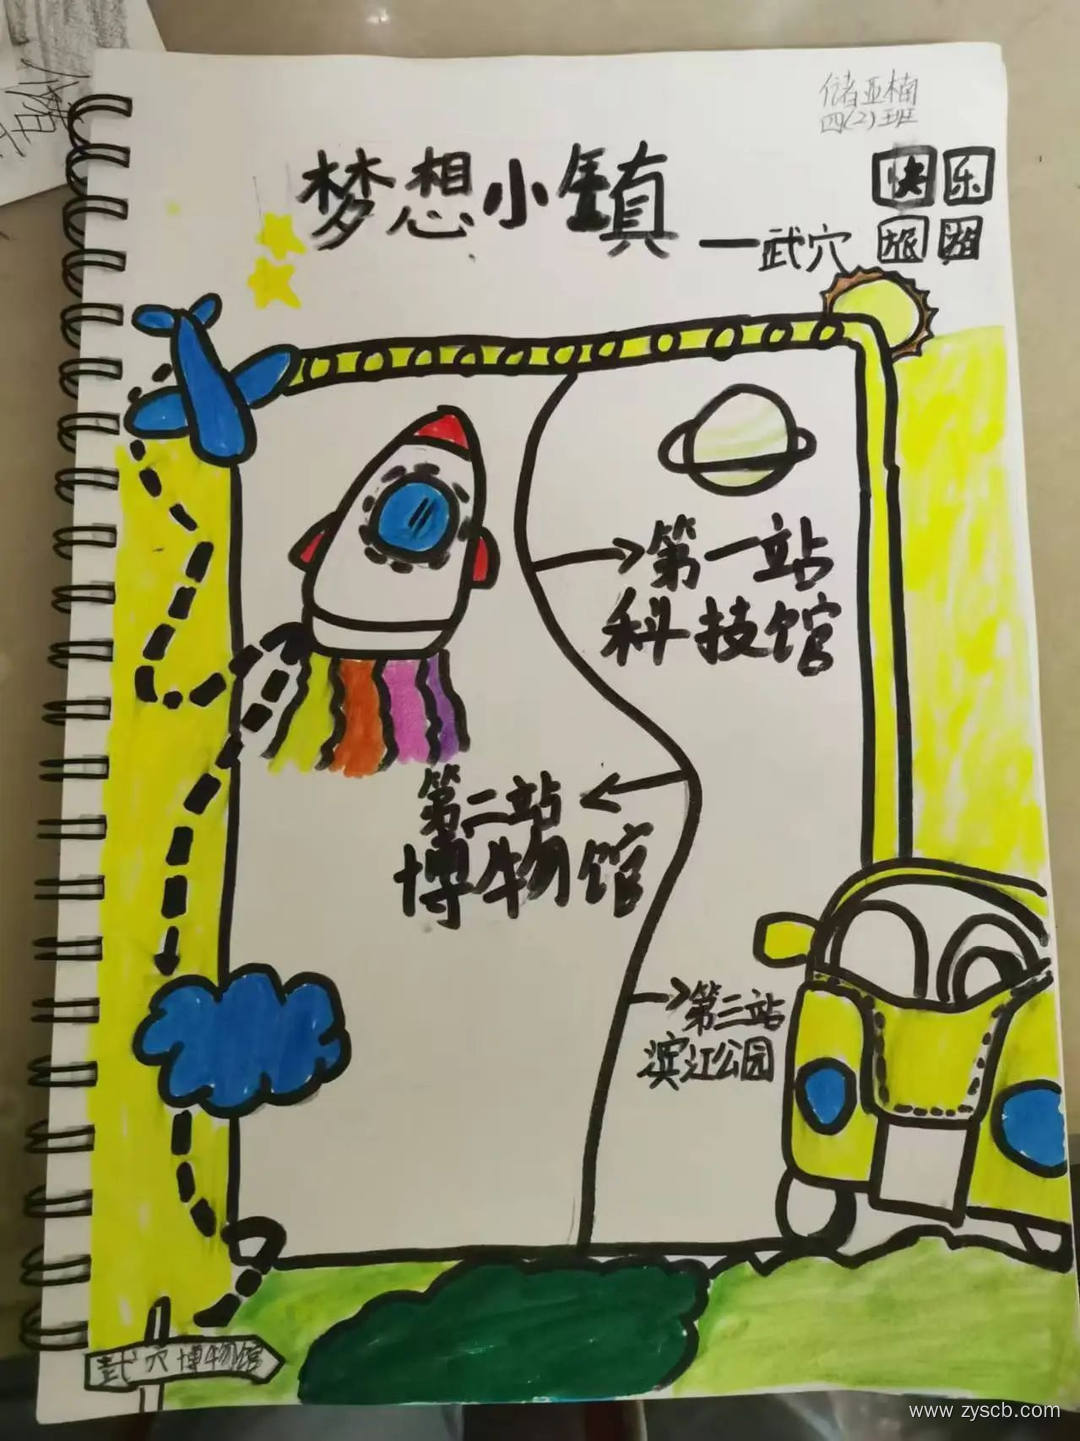 储亚楠
四(2)班
梦想小镇
—武穴
快乐
旅游
第一站
科技馆
第二站
博物馆
第三站
滨江公园
武穴博物馆
www.zyscb.com